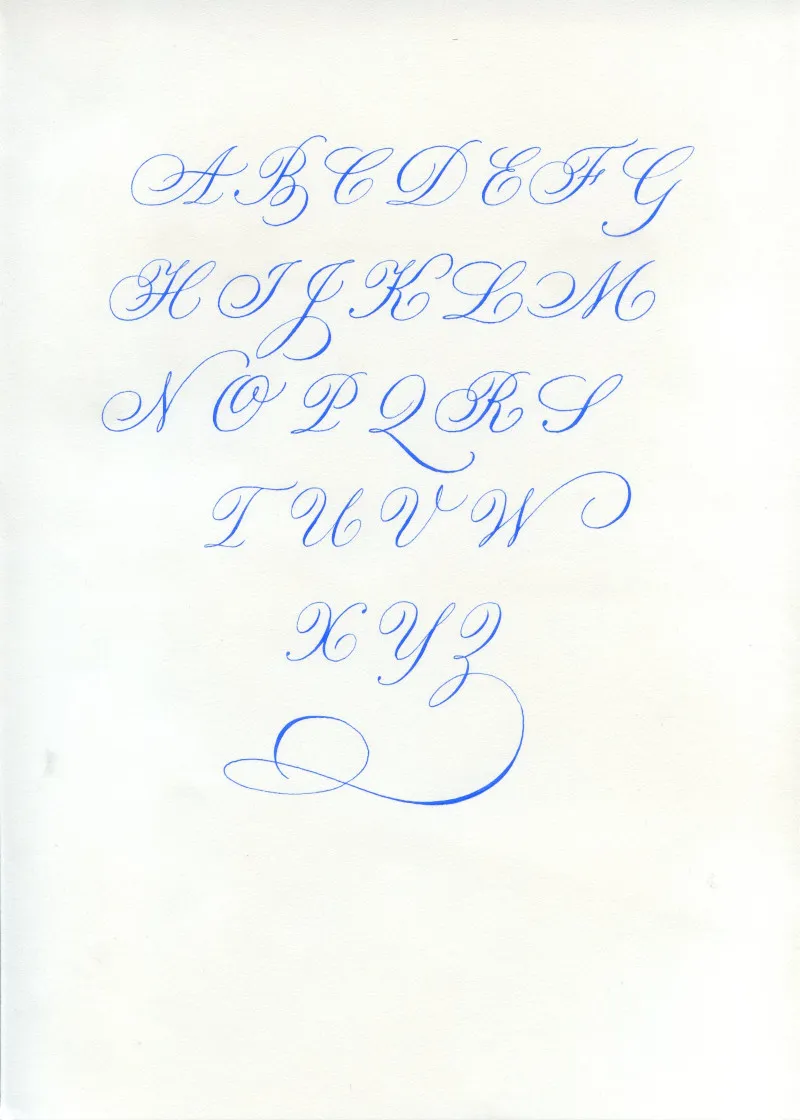 A B C D E F G
H I J K L M
N O P Q R S
T U V W
X Y Z